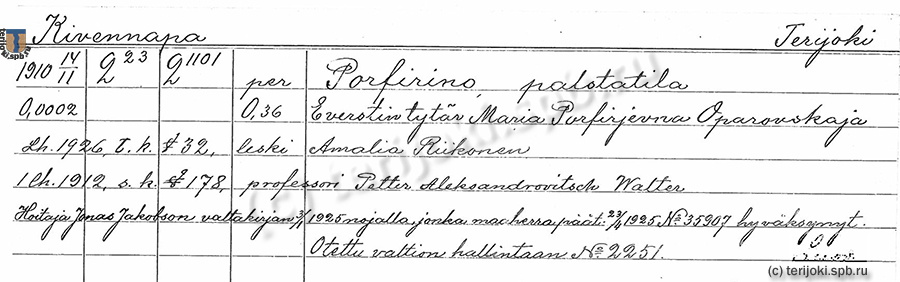 Kivennapa Terijoki
1910 14/11 2 23 2 1101 per Porfirino, palstatila
0,0002 0,36 Everstin tytär Maria Porfirjevna Oparovskaja
Lh. 1926, T. k. § 32, leski Amalia Riikonen
1 Lh. 1912, s. k. § 178, professori Petter Aleksandrovitsch Walter
Hoitaja Jonas Jakobson valtakirjan 3/1 1925 nojalla, jonka maaherra päät: 23/4 1925 № 35907 hyväksynyt.
Otettu valtion hallintaan № 2251.
(c) terijoki.spb.ru